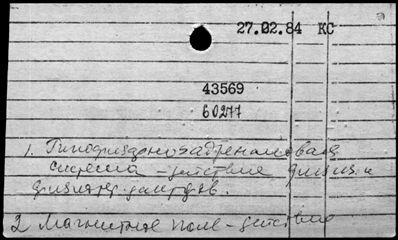 27.02.84 КС
43569
60277
1. Гипофизоно-адреналовая
система - действие физич. и
физиотер. факторов.
2 Магнитное поле - действие